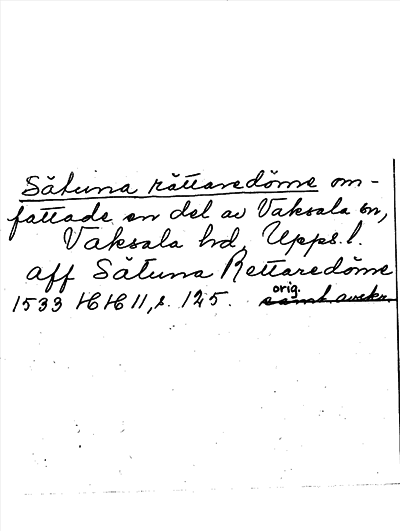 Såtuna rättaredöme om-
fattade en del av Vaksala sn,
Vaksala hd, Upps. l.
aff Såtuna Rettaredöme
1533 HH 11, s. 125. orig.
samt avskr.